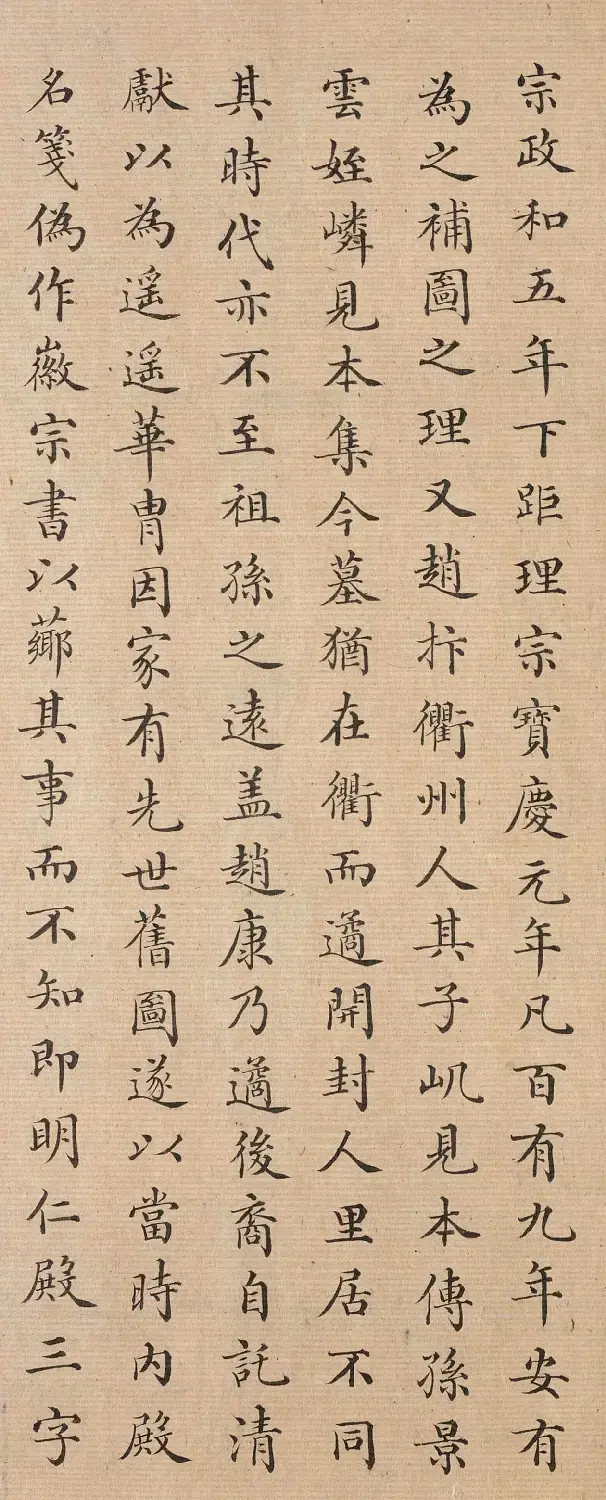 宗政和五年下距理宗寶慶元年凡百有九年安有
為之補圖之理又趙抃衢州人其子屼見本傳孫景
雲姪嶙見本集今墓猶在衢而遹開封人里居不同
其時代亦不至祖孫之遠盖趙康乃遹後裔自託清
獻以為遥遥華胄因家有先世舊圖遂以當時内殿
名箋偽作徽宗書以薌其事而不知即明仁殿三字